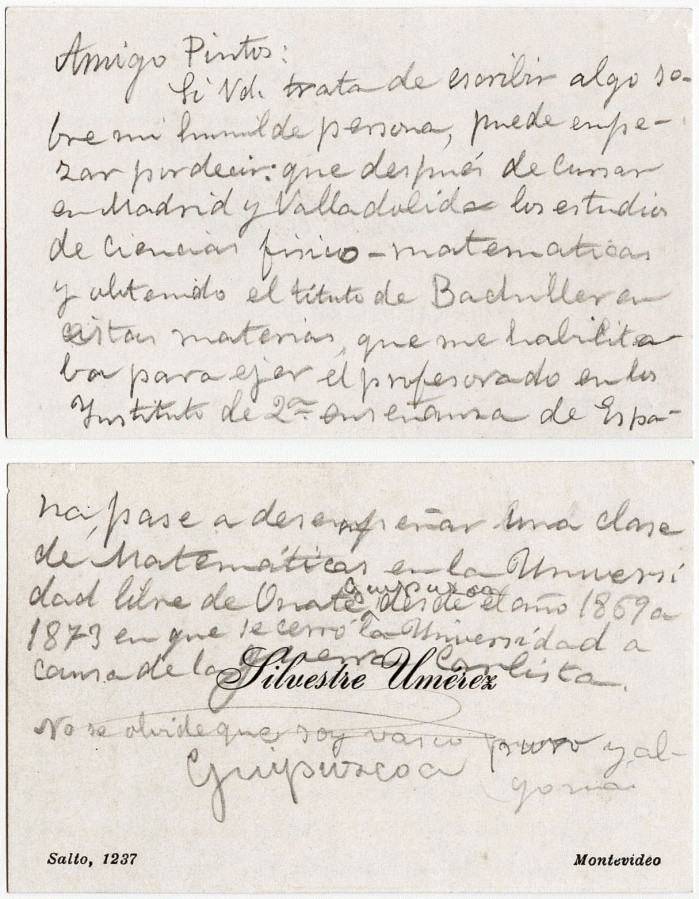 Amigo Pintos:
Si Vd. trata de escribir algo so-
bre mi humilde persona, puede empe-
zar por decir: que después de cursar
en Madrid y Valladolid los estudios
de ciencias físico-matematicas
y obtenido el título de Bachiller en
estas materias, que me habilita-
ba para ejer el profesorado en los
Instituto de 2ª enseñanza de Espa-
ña, pase a desempeñar una clase
de Matemáticas en la Universi
dad libre de Oñate, Guipuzcoa desde el año 1869 a
1873 en que se cerró la Universidad a
causa de la guerra Carlista.
Silvestre Umérez
No se olvide que soy vasco puro y al-
Guipuzcoa
Salto, 1237
Montevideo